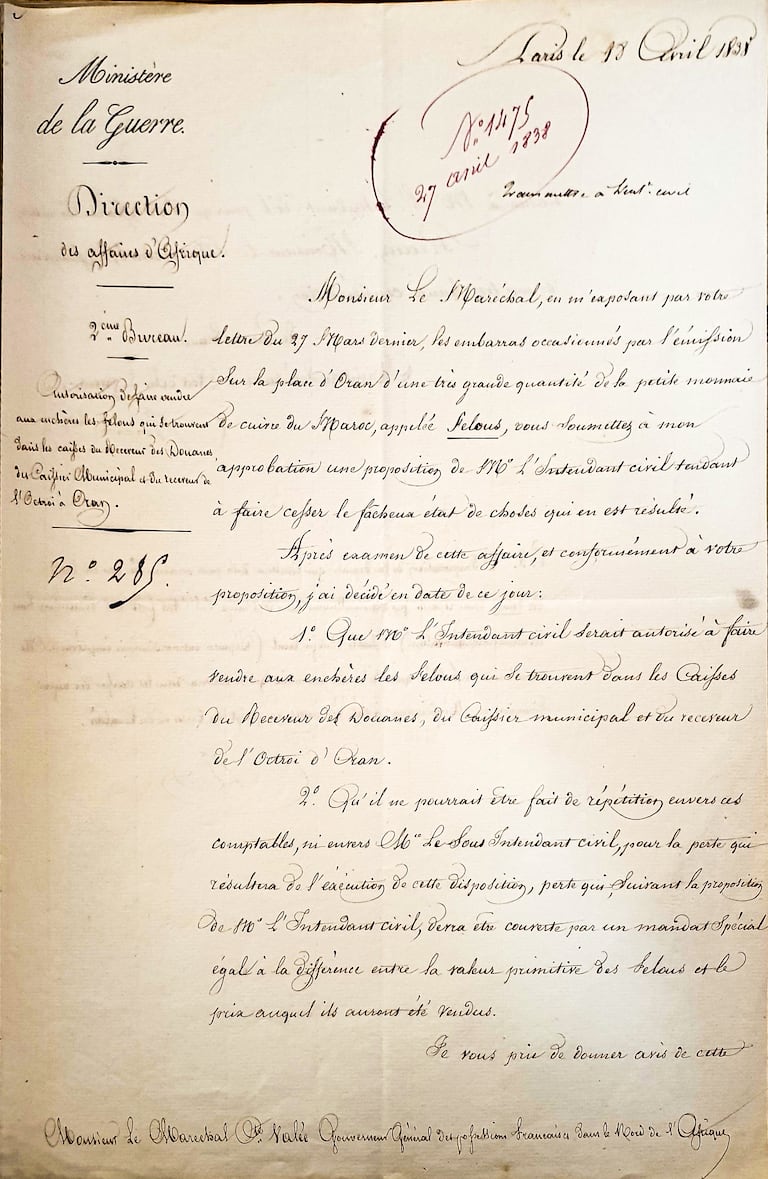 Paris le 18 Avril 1838
Ministère
de la Guerre.
Direction
des affaires d'Afrique.
2ème Bureau.
Autorisation de faire vendre
aux enchères les felous qui se trouvent
dans les caisses du Receveur des Douanes,
du Caissier Municipal et du receveur de
l'Octroi à Oran.
N.° 285.
N.° 1475
27 avril 1838
transmettre à l'Int. civil
Monsieur Le Maréchal, en m'exposant par votre
lettre du 27 Mars dernier, les embarras occasionnés par l'émission
Sur la place d'Oran d'une très grande quantité de la petite monnaie
de cuivre du Maroc, appelée Felous, vous soumettez à mon
approbation une proposition de Mr. L'Intendant civil tendant
à faire cesser le fâcheux état de choses qui en est résulté.
Après examen de cette affaire, et conformément à votre
proposition, j'ai décidé en date de ce jour:
1.° Que Mr. L'Intendant civil serait autorisé à faire
vendre aux enchères les Felous qui se trouvent dans les Caisses
du Receveur des Douanes, du Caissier municipal et du receveur
de l'Octroi d'Oran.
2.° Qu'il ne pourrait être fait de répétition envers ces
comptables, ni envers Mr. Le Sous Intendant civil, pour la perte qui
résultera de l'exécution de cette disposition, perte qui, Suivant la proposition
de Mr. L'Intendant civil, devra être couverte par un mandat Spécial
égal à la différence entre la valeur primitive des Felous et le
prix auquel ils auront été vendus.
Je vous prie de donner avis de cette
Monsieur Le Maréchal Cte. Valée Gouverneur Général des possessions françaises dans le Nord de l'Afrique